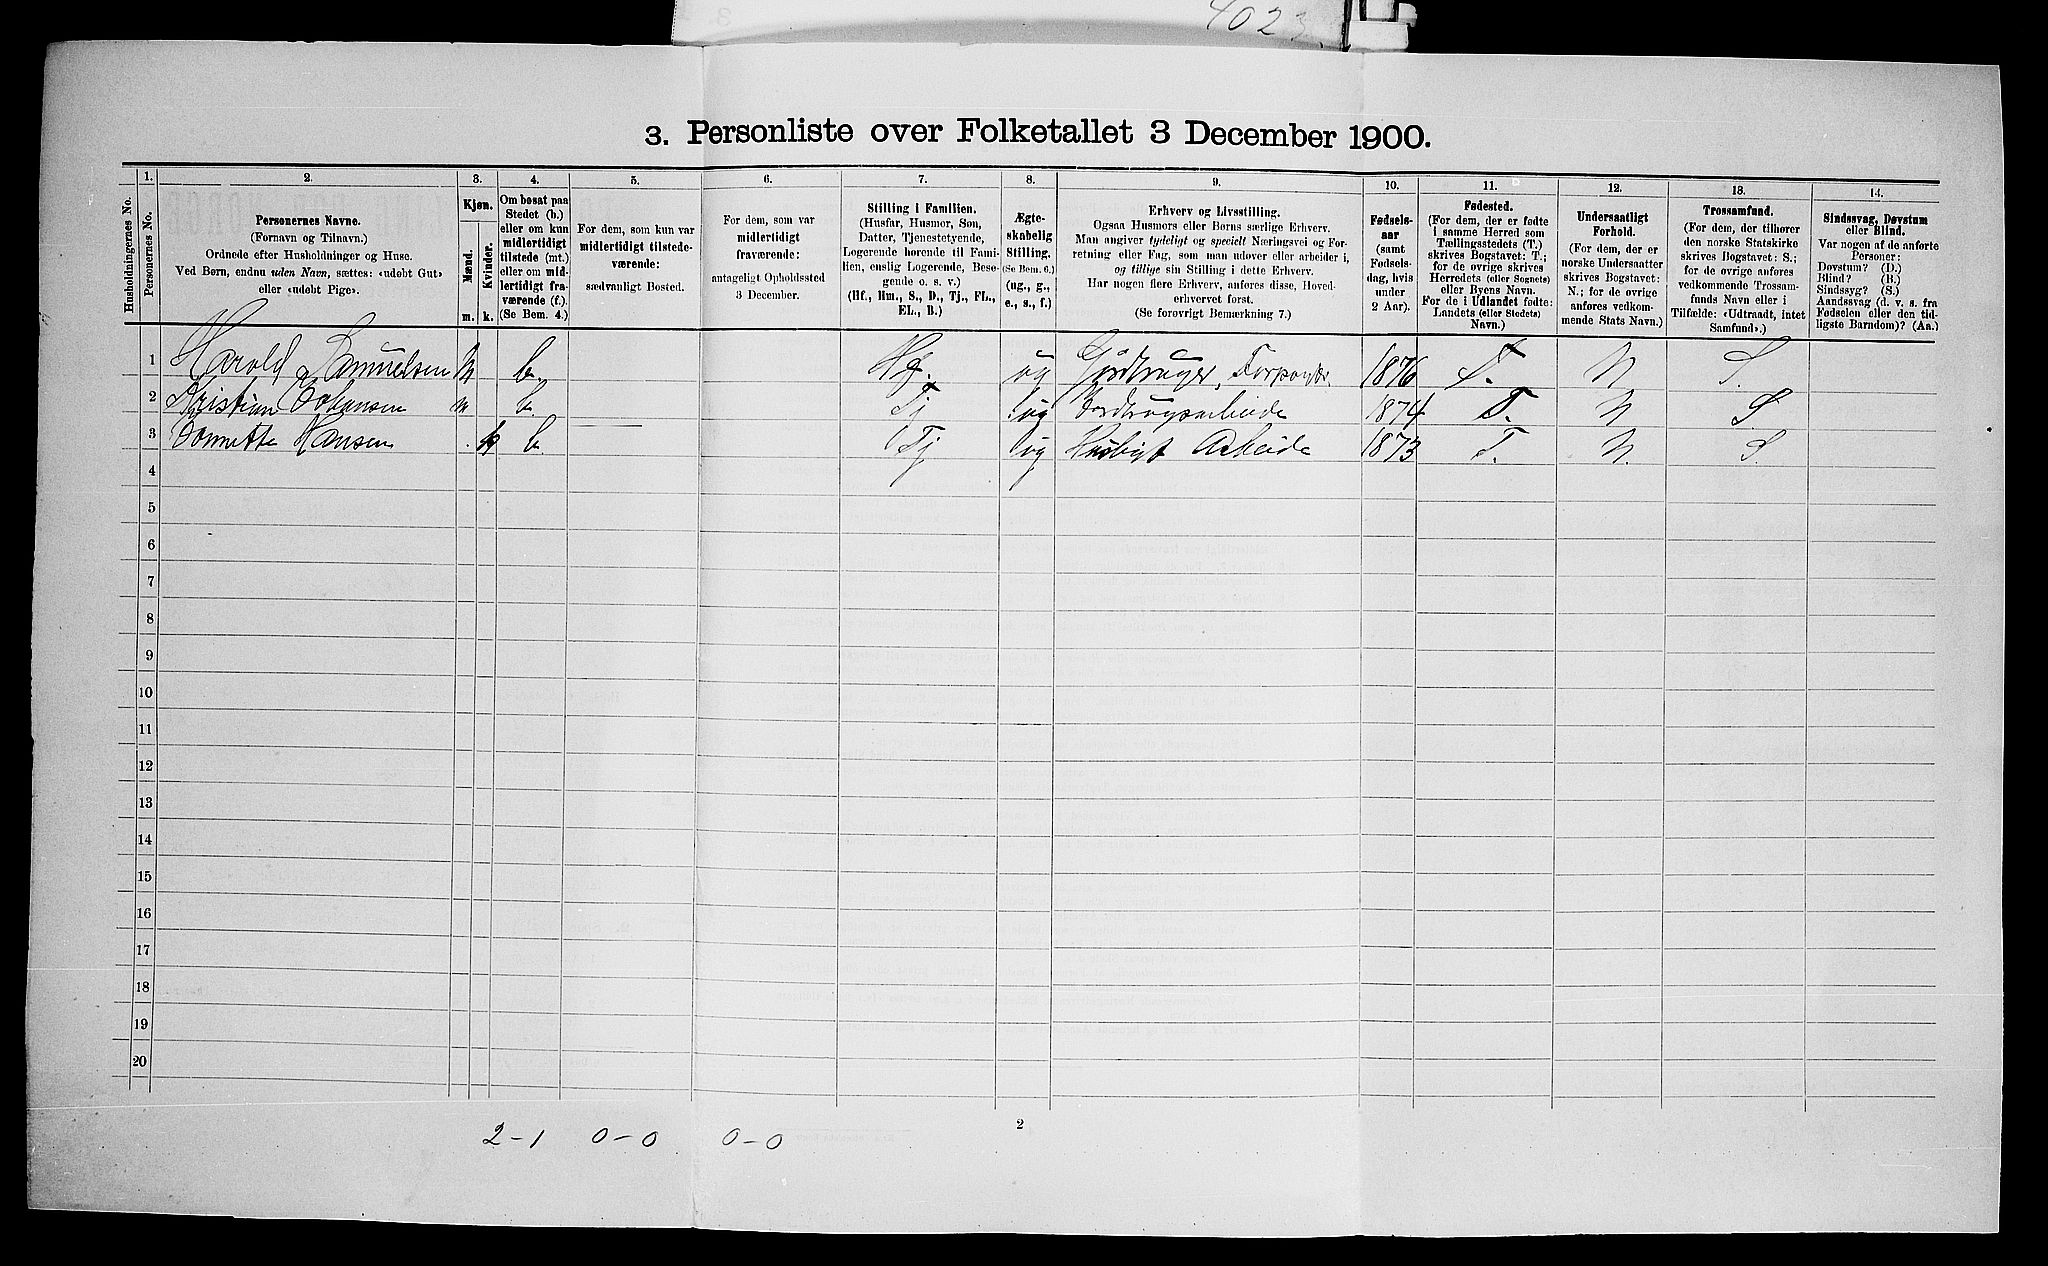 4023
3. Personliste over Folketallet 3 December 1900.
Husholdningernes No.
1.
Personernes No.
2.
Personernes Navne.
(Fornavn og Tilnavn.)
Ordnede efter Husholdninger og Huse.
Ved Børn, endnu uden Navn, sættes: «udøbt Gut»
eller «udøbt Pige».
3.
Kjøn.
Mænd.
Kvinder.
m. k.
4.
Om bosat paa
Stedet (b.)
eller om kun
midlertidigt
tilstede (mt.)
eller om mid-
lertidigt fra-
værende (f.).
(Se Bem. 4.)
5.
For dem, som kun var
midlertidigt tilstede-
værende:
sædvanligt Bosted.
6.
For dem, som var
midlertidigt
fraværende:
antageligt Opholdssted
3 December.
7.
Stilling i Familien.
(Husfar, Husmor, Søn,
Datter, Tjenestetyende,
Logerende hørende til Fami-
lien, enslig Logerende, Besø-
gende o. s. v.)
(Hf., Hm., S., D., Tj., FL.,
EL., B.)
8.
Ægte-
skabelig
Stilling.
(Se Bem. 6.)
(ug., g.,
e., s., f.)
9.
Erhverv og Livsstilling.
Ogsaa Husmors eller Børns særlige Erhverv.
Man angiver tydeligt og specielt Næringsvei og For-
retning eller Fag, som man udøver eller arbeider i,
og tillige sin Stilling i dette Erhverv.
Har nogen flere Erhverv, anføres disse, Hoved-
erhvervet først.
(Se forøvrigt Bemærkning 7.)
10.
Fødsels-
aar
(samt
Fødsels-
dag, hvis
under
2 Aar).
11.
Fødested.
(For dem, der er fødte
i samme Herred som
Tællingsstedets (T.)
skrives Bogstavet: T.;
for de øvrige skrives
Herredets (eller Sognets)
eller Byens Navn.
For de i Udlandet fødte:
Landets (eller Stedets)
Navn.)
12.
Undersaatligt
Forhold.
(For dem, der er
norske Undersaatter
skrives Bogstavet:
N.; for de øvrige
anføres vedkom-
mende Stats Navn.)
13.
Trossamfund.
(For dem, der tilhører
den norske Statskirke
skrives Bogstavet: S.;
for de øvrige anføres
vedkommende Trossam-
funds Navn eller i
Tilfælde: «Udtraadt, intet
Samfund».)
14.
Sindssvag, Døvstum
eller Blind.
Var nogen af de anførte
Personer:
Døvstum? (D.)
Blind? (B.)
Sindssyg? (S.)
Aandssvag (d. v. s. fra
Fødselen eller den tid-
ligste Barndom)? (Aa.)
1 Harold Samuelsen M b Hf. ug Gårdbruger, 1876 T. N S.
2 Kristian Johansen m b. Tj ug Jordbrugsarbeide 1874 T. N S
3 Hansen k b Tj ug Husligt Arbeide 1873 T. N. S.
4
5
6
7
8
9
10
11
12
13
14
15
16
17
18
19
20
2-1 0-0 0-0
2